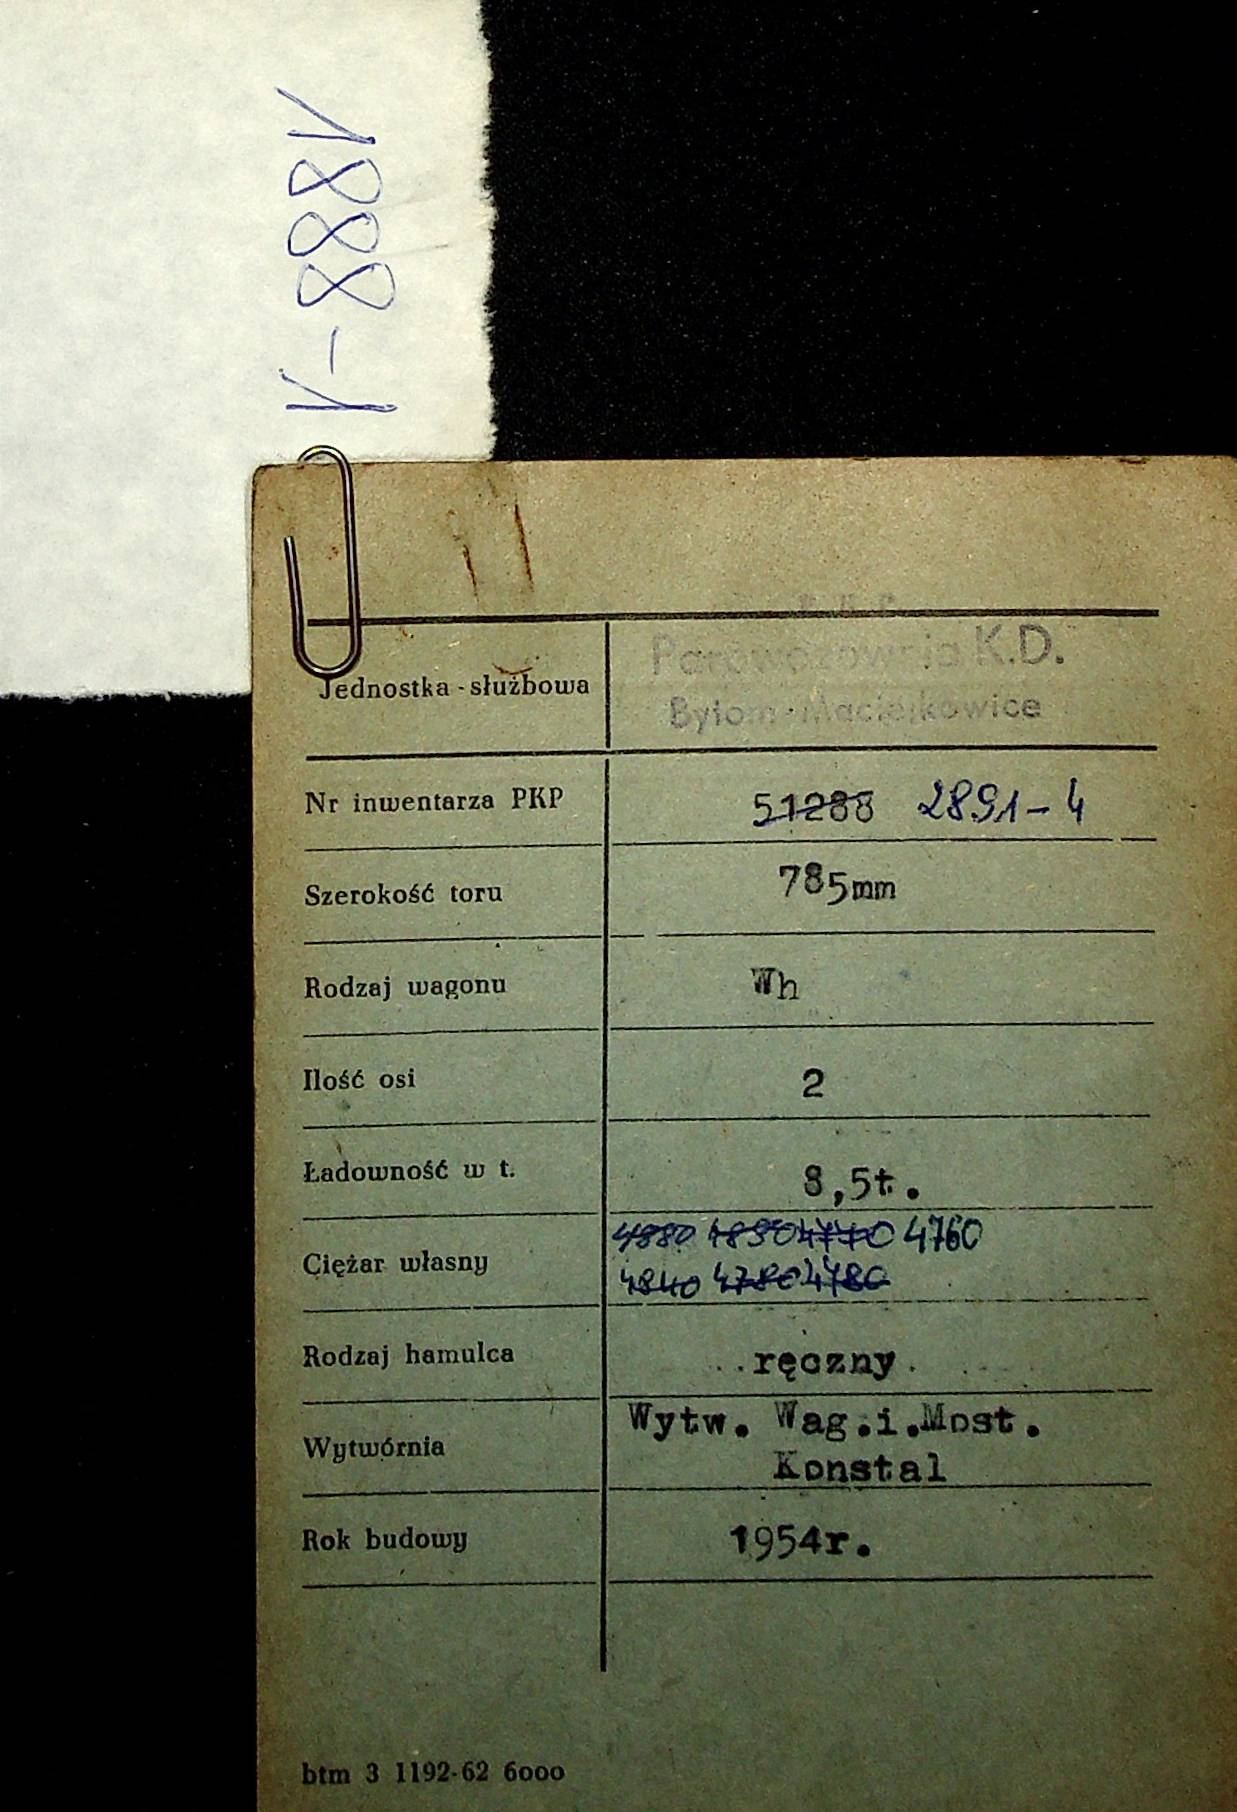 V-888V
P.K.P.
Parowozownia K.D.
Jednostka-służbowa
Bytom-Maciejkowice
Nr inwentarza PKP 51288 2891-4
Szerokość toru 785mm
Rodzaj wagonu Wh
Ilość osi 2
Ładowność w t. 8,5t.
4880 4850 4770 4760
Ciężar własny
4840 4780 4780
Rodzaj hamulca ręczny
Wytw. Wag.i.Most.
Wytwórnia
Konstal
Rok budowy 1954r.
btm 3 1192-62 6000